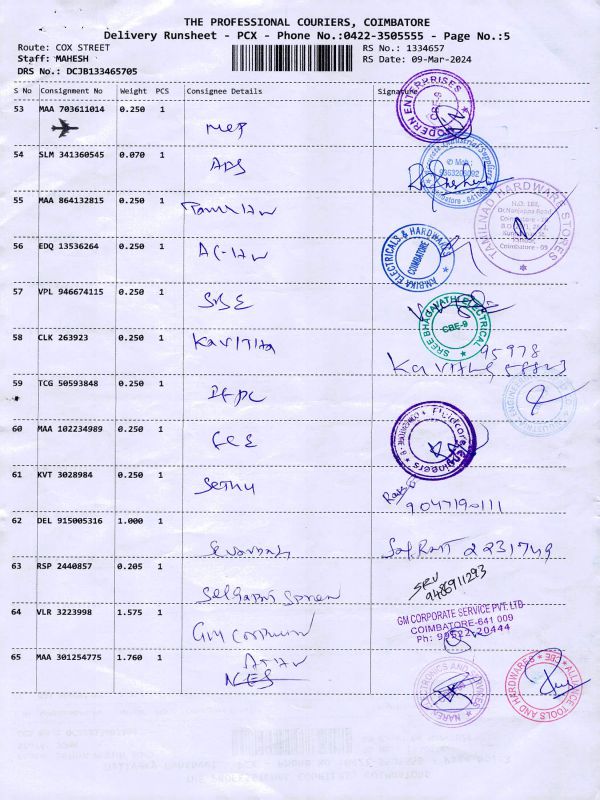 THE PROFESSIONAL COURIERS, COIMBATORE
Delivery Runsheet - PCX - Phone No.:0422-3505555 - Page No.:5
Route: COX STREET
RS No.: 1334657
Staff: MAHESH
RS Date: 09-Mar-2024
DRS No.: DCJB133465705
S No Consignment No Weight PCS Consignee Details Signature
53 MAA 703611014 0.250 1
MODERN ENTERPRISES
54 SLM 341360545 0.070 1 ADS
Industrial Suppliers
Mob :
9363209092
55 MAA 864132815 0.250 1
TAMILNAD HARDWARE STORES
N.O: 188,
Coimbatore - 09
56 EDQ 13536264 0.250 1
AMBIKA ELECTRICALS & HARDWARE
COIMBATORE
57 VPL 946674115 0.250 1 SBE
SREE BHAGAVATH ELECTRICAL
CBE-9
58 CLK 263923 0.250 1 Kavitha
95978
Kavitha 58823
59 TCG 50593848 0.250 1
60 MAA 102234989 0.250 1
Fluidcore Engineers
61 KVT 3028984 0.250 1 Sethu
9047190111
62 DEL 915005316 1.000 1
2231749
63 RSP 2440857 0.205 1
SRV
9486911293
64 VLR 3223998 1.575 1
GM CORPORATE SERVICE PVT. LTD
COIMBATORE-641 009
Ph: 99522 20444
65 MAA 301254775 1.760 1
NES
ALLIANCE TOOLS AND HARDWARES CBE